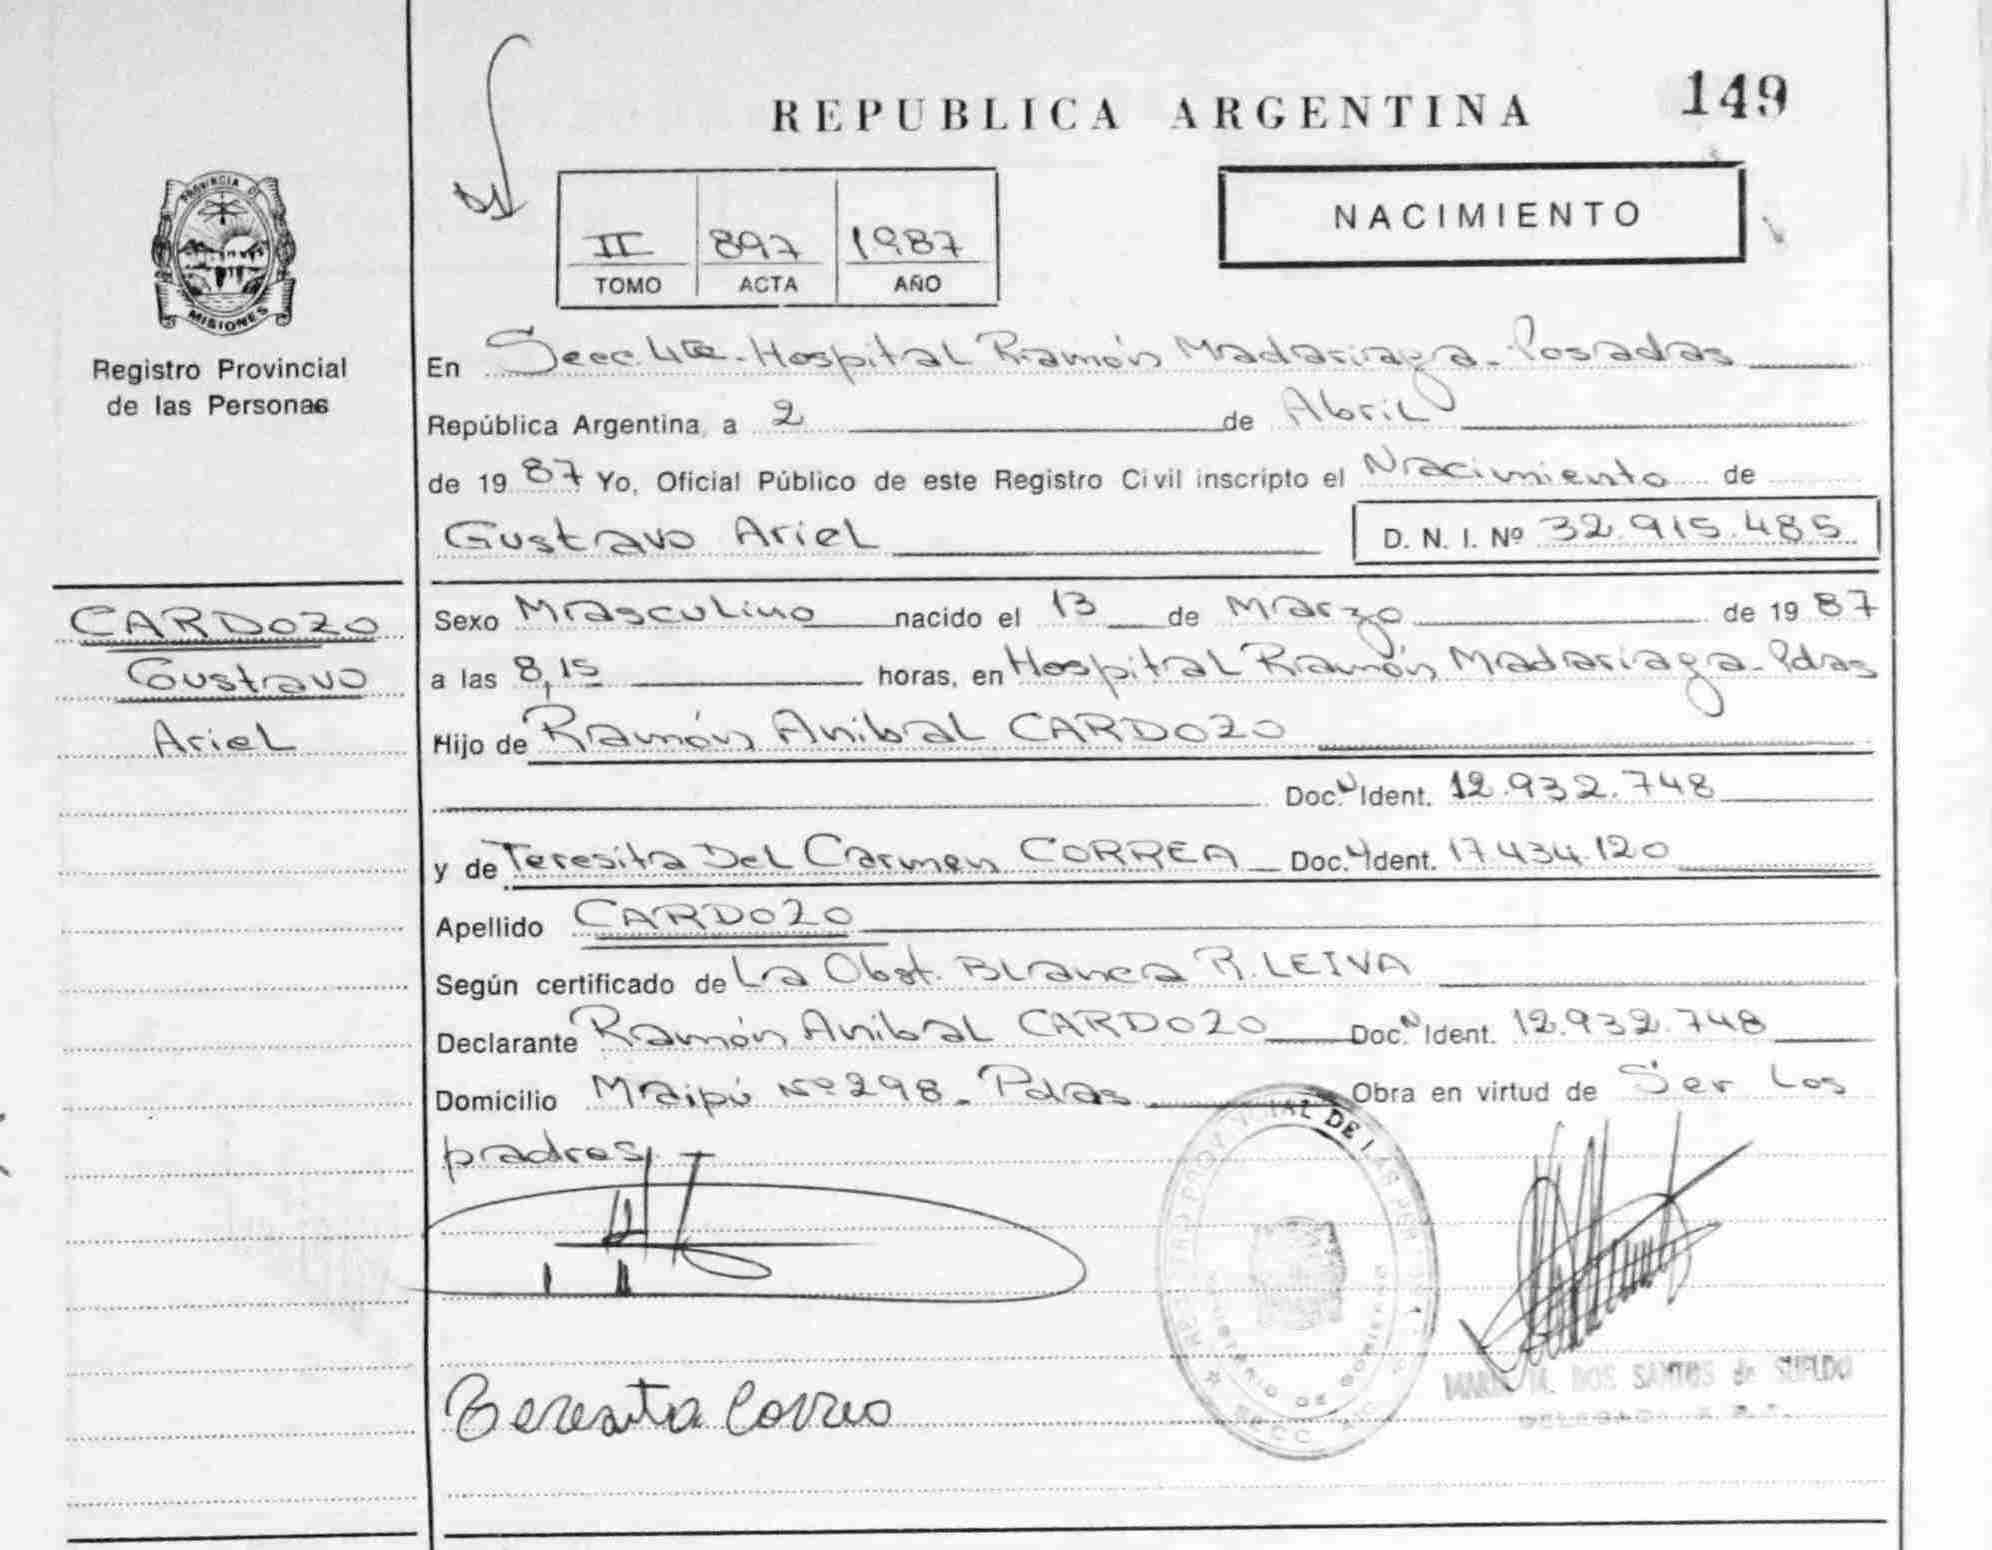 REPUBLICA ARGENTINA 149
PROVINCIA DE
MISIONES
Registro Provincial
de las Personas
II 897 1987
TOMO ACTA AÑO
NACIMIENTO
En Secc. 4ta - Hospital Ramón Madariaga - Posadas
República Argentina, a 2 de Abril
de 19 87 Yo, Oficial Público de este Registro Civil inscripto el Nacimiento de
Gustavo Ariel D. N. I. Nº 32.915.485
CARDOZO
Gustavo
Ariel
Sexo Masculino nacido el 13 de Marzo de 19 87
a las 8,15 horas, en Hospital Ramón Madariaga - Pdas
Hijo de Ramón Anibal CARDOZO
Doc. N Ident. 12.932.748
y de Teresita Del Carmen CORREA Doc. N Ident. 17.434.120
Apellido CARDOZO
Según certificado de La Obst. Blanca R. LEIVA
Declarante Ramón Anibal CARDOZO Doc. N Ident. 12.932.748
Domicilio Maipú Nº 298 - Pdas Obra en virtud de Ser Los
padres
DE
DE GOBIERNO
SECC.
DOS SANTOS de
Teresita Correa